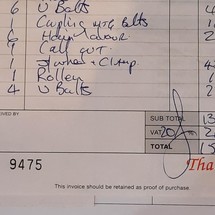 6 U Bolts
Coupling mtg Bolts
6 Hour labour
Call out.
1 Jwheel + Clamp
1 Roller
4 U Bolts
VED BY
SUB TOTAL 13
VAT 20
TOTAL 15
9475
Tha
This invoice should be retained as proof of purchase.